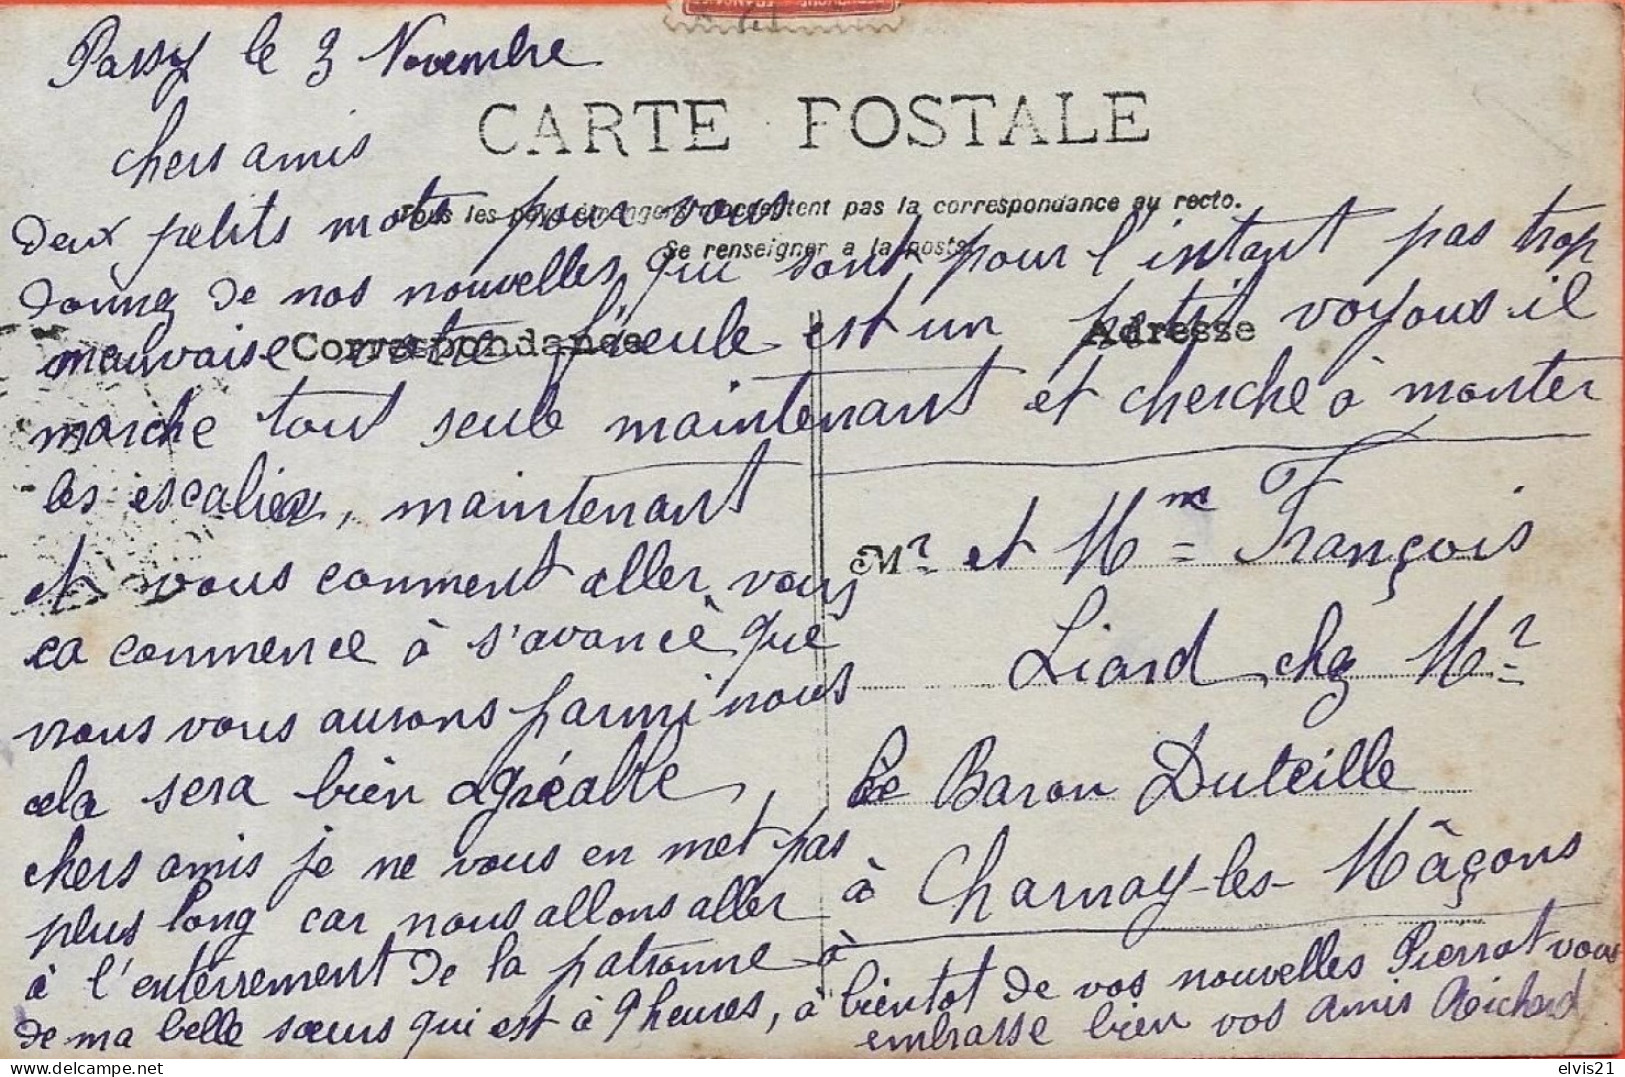 Passy le 3 Novembre
CARTE POSTALE
chers amis
Tous les pays étrangers n'acceptent pas la correspondance au recto.
Se renseigner a la poste
deux petits mots pour vous
donnez de nos nouvelles, qui sont pour l'instant pas trop
mauvaise votre fieule est un petit voyous il
Correspondance
Adresse
marche tout seule maintenant et cherche à monter
les escalier, maintenant
et vous comment aller vous
ça commence à s'avancè que
nous vous aurons parmi nous
cela sera bien agréable,
chers amis je ne vous en met pas
plus long car nous allons aller
à l'enterrement de la patronne à
de ma belle sœurs qui est à 9 heures, à bientot de vos nouvelles Pierrot vous
embrasse bien vos amis Richard
Mr et Mme François
Liard chez Mr
Le Baron Duteille
à Charnay-les-Mâçons
elvis21